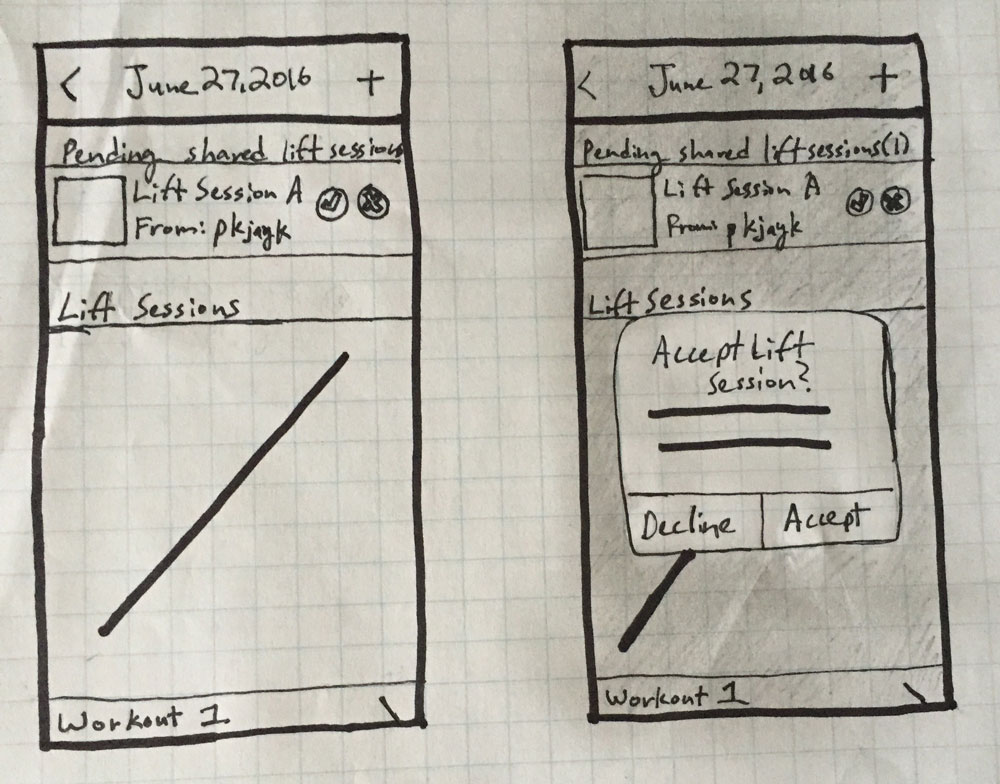 < June 27, 2016 +
Pending shared lift sessions
Lift Session A
From: pkjayk
Lift Sessions
Workout 1
< June 27, 2016 +
Pending shared lift sessions (1)
Lift Session A
From: pkjayk
Lift Sessions
Accept Lift
Session?
Decline Accept
Workout 1